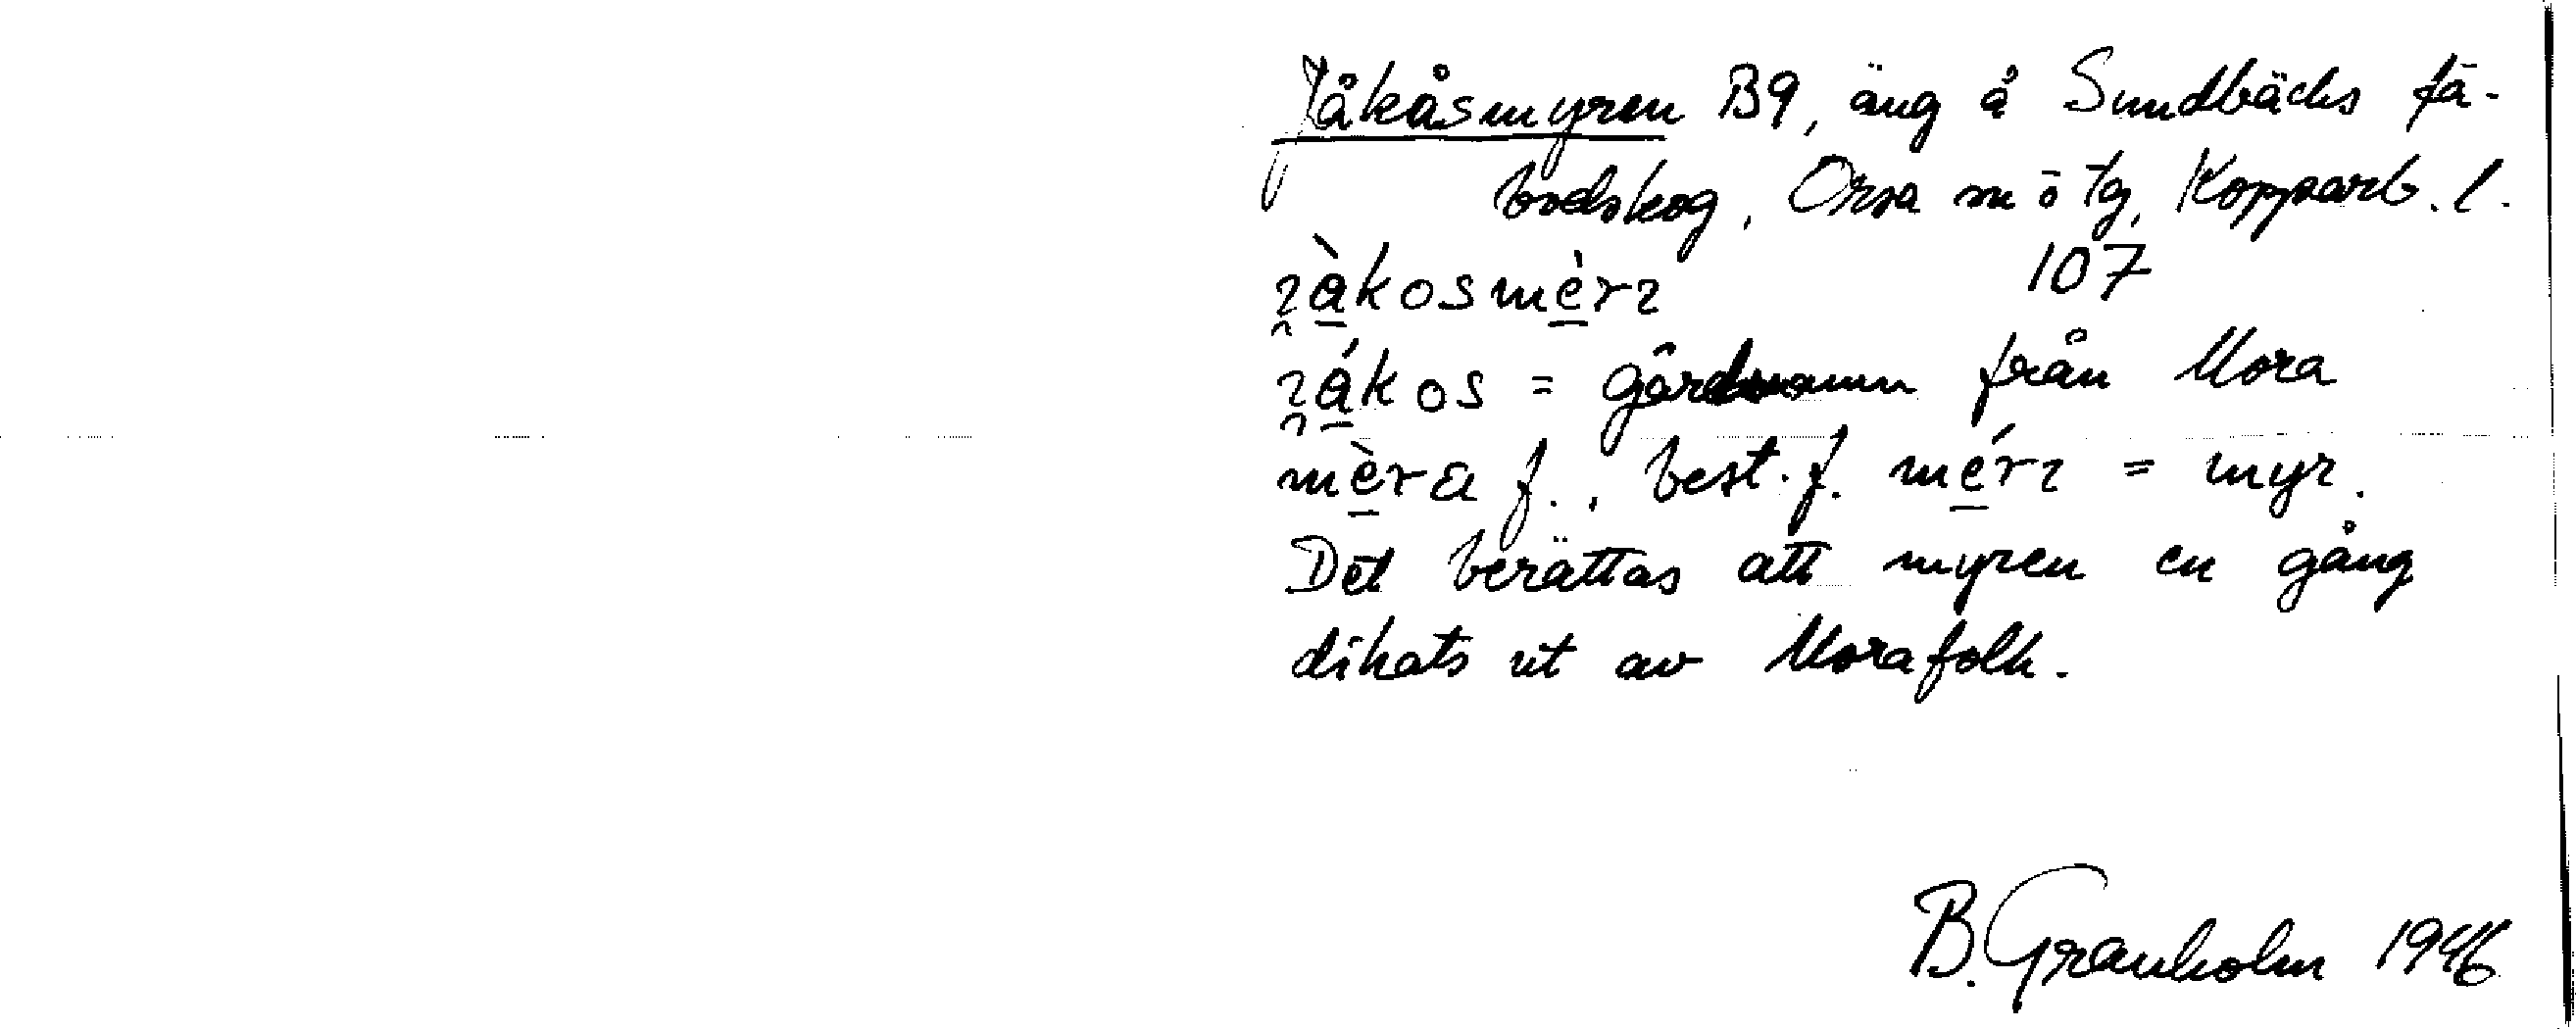 Jåkåsmyren B9, äng å Sundbäcks fä-
bodskog, Orsa sn ō tg, Kopparb. l.
ɿ̯à̱kosmè̱rɿ 107
ɿ̯á̱kos = gårdsnamn från Mora
mè̱ra f., best. f. mé̱rɿ = myr.
Det berättas att myren en gång
dikats ut av Morafolk.
B. Granholm 1946